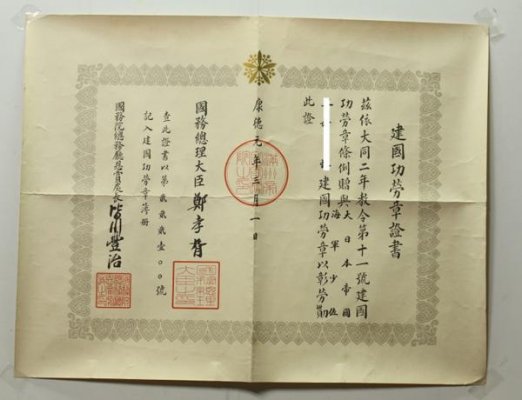 建國功勞章證書
茲依大同二年敎令第十一號建國
功勞章條例贈與大日本帝國
海軍少佐
建國功勞章以彰勞勛
此證
康德元年三月一日
國務總理大臣鄭孝胥
查此證書以第貳貳貳壹〇〇號
記入建國功勞章簿冊
國務院總務廳恩賞處長皆川豐治